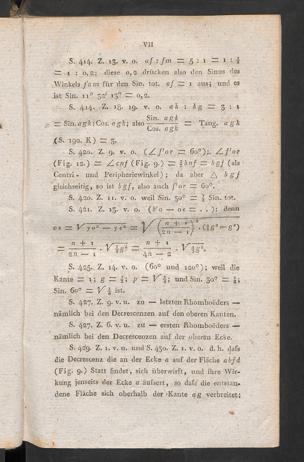 VII
S. 414. Z. 13. v. o. af : fm = 5 : 1 = 1 : ⅕
= 1 : 0,2; diese 0,2 drücken also den Sinus des
Winkels fam für den Sin. tot. af = 1 aus; und es
ist Sin. 11° 32′ 13″ = 0,2.
S. 414. Z. 18. 19. v. o. ak : kg = 5 : 1
= Sin. agk : Cos. agk; also Sin. agk / Cos. agk = Tang. agk
(S. 190. K) = 5.
S. 420. Z. 9. v. o. (∠ f'or = 60°); ∠ f'or
(Fig. 12.) = ∠ cnf (Fig. 9.) = bgf (als
Centri- und Peripheriewinkel); da aber △ bgf
gleichseitig, so ist bgf, also auch f'or = 60°.
S. 420. Z. 11. v. o. weil Sin. 30° = ½ Sin. tot.
S. 421. Z. 13. v. o. denn
S. 425. Z. 14. v. o. (60° und 120°); weil die
Kante = 1; und Sin. 30° = ½;
Sin. 60° = ist.
S. 427. Z. 9. v. u. zu — letzten Rhomboëders —
nämlich bei den Decrescenzen auf den oberen Kanten.
S. 427. Z. 6. v. u. zu — ersten Rhomboëders —
nämlich bei den Decrescenzen auf der oberen Ecke.
S. 429. Z. 1. v. u. und S. 430. Z. 1. v. o. d. h. dafs
die Decrescenz die an der Ecke a auf der Fläche abfd
(Fig. 9.) Statt findet, sich überwirft, und ihre Wir-
kung jenseits der Ecke a äufsert, so dafs die entstan-
dene Fläche sich oberhalb der Kante ag verbreitet;